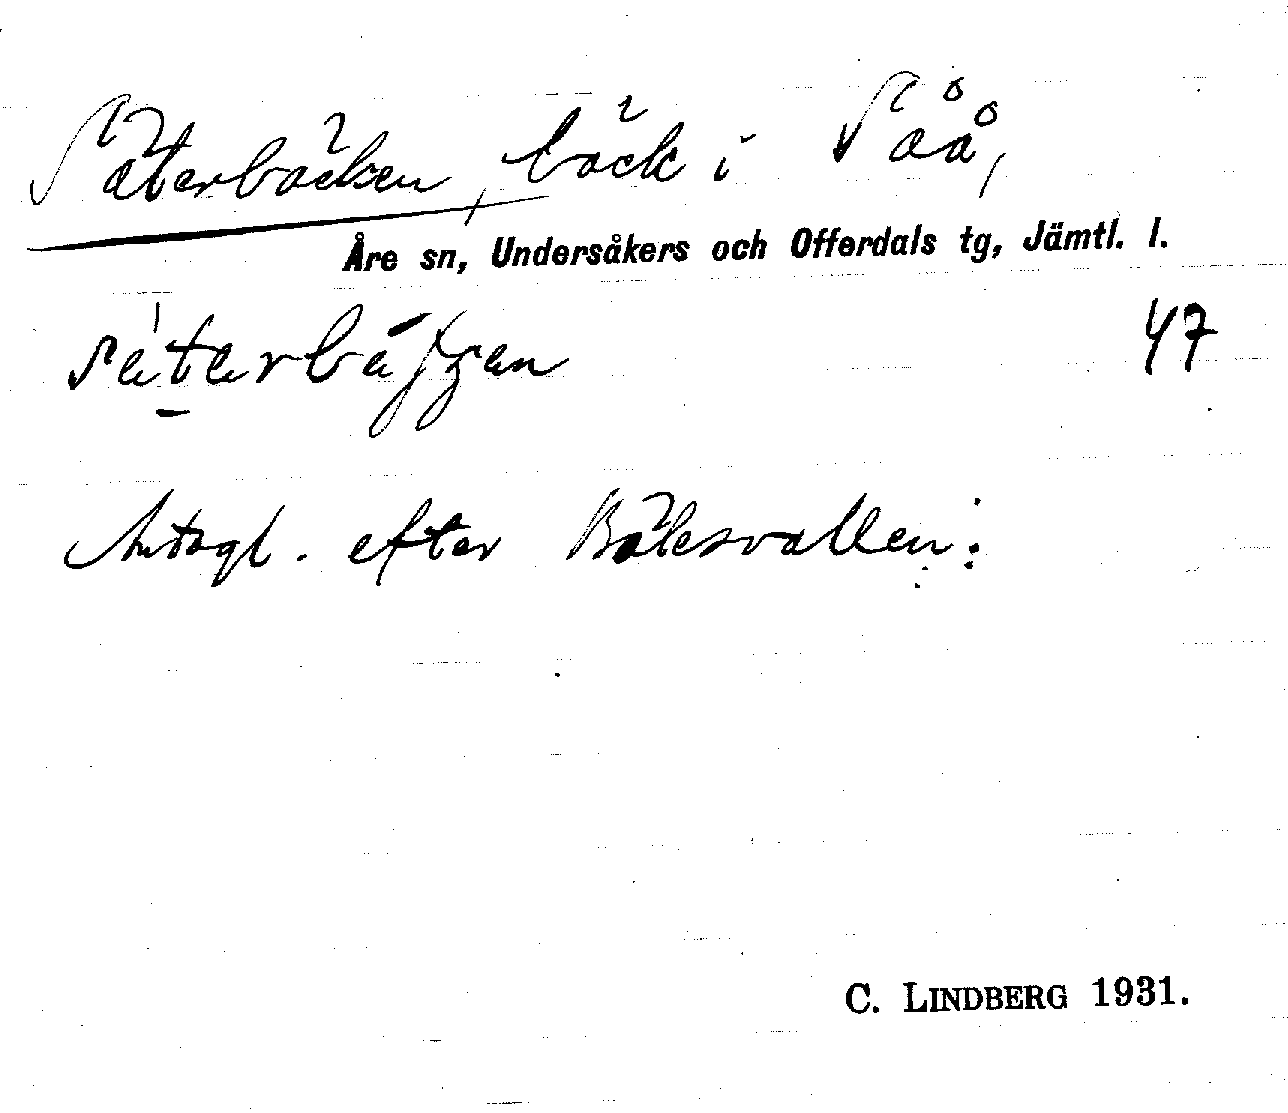 Säterbäcken, bäck i Såå,
Åre sn, Undersåkers och Offerdals tg, Jämtl. l.
47
Antagl. efter Bälesvallen:
C. LINDBERG 1931.